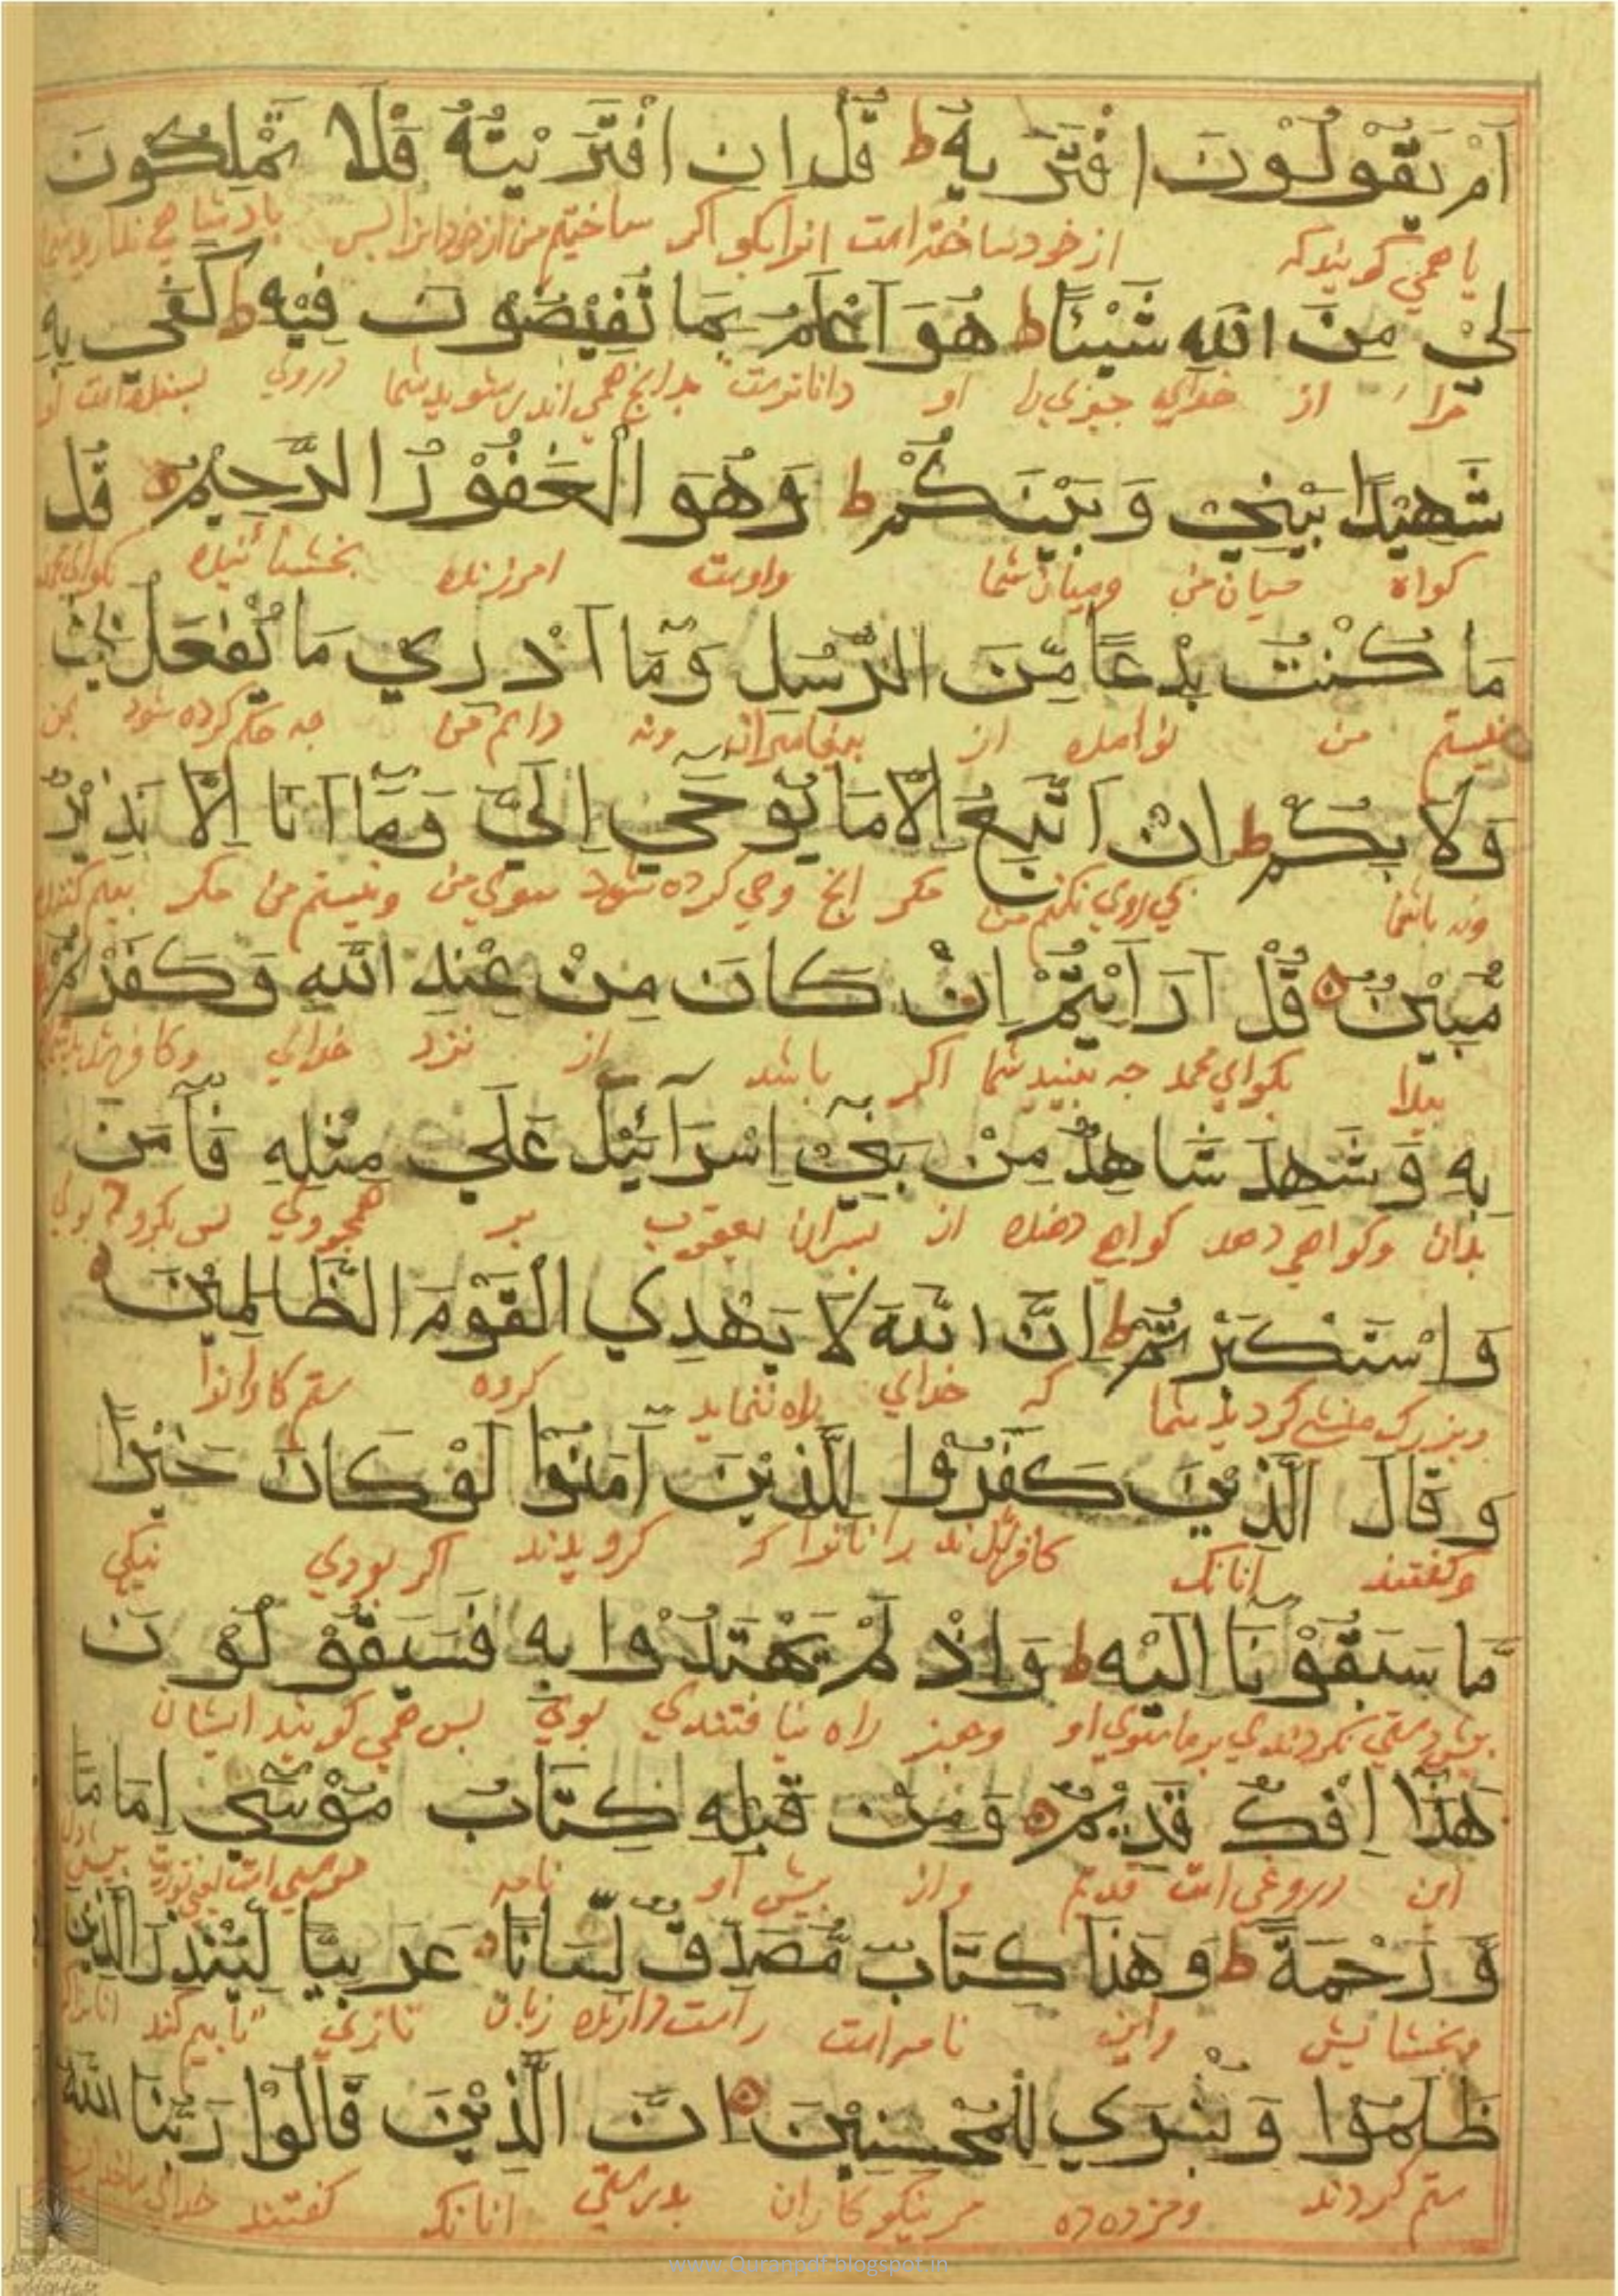 اَمْ يَقُوْلُوْنَ افْتَرٰىهُ ط قُلْ اِنِ افْتَرَيْتُهٗ فَلَا تَمْلِكُوْنَ
يا همي كويندكه از خود ساخته است انرا بكو اكر ساختيم من از خود انرا پس بادشاهي نداريد
لِيْ مِنَ اللّٰهِ شَيْئًا ط هُوَ اَعْلَمُ بِمَا تُفِيْضُوْنَ فِيْهِ ط كَفٰى بِهٖ
مرا از خداي چيزي را او داناترست بدانچ همي اندر شويد شما دروي بسنده است او
شَهِيْدًا بَيْنِيْ وَبَيْنَكُمْ ط وَهُوَ الْغَفُوْرُ الرَّحِيْمُ قُلْ
كواه ميان من وميان شما واوست امرزنده بخشاينده بكو اي محمد
مَا كُنْتُ بِدْعًا مِّنَ الرُّسُلِ وَمَآ اَدْرِي مَا يُفْعَلُ بِيْ
نيستم من نوامده از بيغامبران ونه دانم من چه حكم كرده شود بمن
وَلَا بِكُمْ ط اِنْ اَتَّبِعُ اِلَّا مَا يُوْحٰي اِلَيَّ وَمَآ اَنَا اِلَّا نَذِيْرٌ
ونه باشما پي روي نكنم من مكر انچ وحي كرده شود سوي من ونيستم من مكر بيم كننده
مُّبِيْنٌ قُلْ اَرَاَيْتُمْ اِنْ كَانَ مِنْ عِنْدِ اللّٰهِ وَكَفَرْتُمْ
پيدا بكو اي محمد چه بينيد شما اكر باشد از نزد خداي وكافر شديد
بِهٖ وَشَهِدَ شَاهِدٌ مِنْ بَنِيْٓ اِسْرَآئِيْلَ عَلٰي مِثْلِهٖ فَاٰمَنَ
بدان وكواهي دهد كواهي دهنده از پسران يعقوب بر همچووي پس بكرود بوي
وَاسْتَكْبَرْتُمْ ط اِنَّ اللّٰهَ لَا يَهْدِي الْقَوْمَ الظَّالِمِيْنَ
وبزرك منشي كرديد شما كه خداي راه ننمايد كروه ستم كارانرا
وَقَالَ الَّذِيْنَ كَفَرُوْا لِلَّذِيْنَ اٰمَنُوْا لَوْ كَانَ خَيْرًا
وكفتند آنانك كافر شدند مر انانرا كه كرويدند اكر بودي نيكي
مَّا سَبَقُوْنَآ اِلَيْهِ ط وَاِذْ لَمْ يَهْتَدُوْا بِهٖ فَسَيَقُوْلُوْنَ
پيش دستي نكردندي برما سوي او وچز راه نيافتندي بوي پس همي كويند ايشان
هٰذَآ اِفْكٌ قَدِيْمٌ وَمِنْ قَبْلِهٖ كِتَابُ مُوْسٰٓي اِمَامًا
اين دروغي است قديم واز پيش او نامه موسي است يعني توريت
وَّرَحْمَةً ط وَهٰذَا كِتَابٌ مُّصَدِّقٌ لِّسَانًا عَرَبِيًّا لِّيُنْذِرَ الَّذِيْنَ
وبخشايش واين نامه است راست دارنده زبان تازي تا بيم كند انانرا
ظَلَمُوْا وَبُشْرٰي لِلْمُحْسِنِيْنَ اِنَّ الَّذِيْنَ قَالُوْا رَبُّنَا اللّٰهُ
ستم كردند ومژده ده مرنيكوكاران بدرستي انانك كفتند خداي ما خدايست
www.Quranpdf.blogspot.in